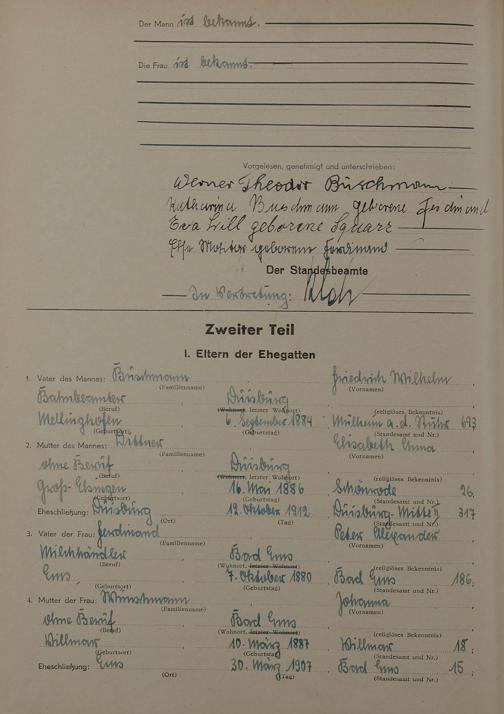 Der Mann ist bekannt.
Die Frau ist bekannt.
Vorgelesen, genehmigt und unterschrieben:
Werner Theodor Buschmann
Katharina Buschmann geborene Ferdinand
Eva Will geborene
geborene Ferdinand
Der Standesbeamte
In Vertretung:
Zweiter Teil
I. Eltern der Ehegatten
1. Vater des Mannes: Buschmann Friedrich Wilhelm
(Familienname) (Vornamen)
Bahnbeamter Duisburg
(Beruf) (Wohnort, letzter Wohnort) (religiöses Bekenntnis)
Mellinghofen 6. September 1884 Mülheim a. d. Ruhr 693
(Geburtsort) (Geburtstag) (Standesamt und Nr.)
2. Mutter des Mannes: Dittner Elisabeth Emma
(Familienname) (Vornamen)
ohne Beruf Duisburg
(Beruf) (Wohnort, letzter Wohnort) (religiöses Bekenntnis)
Groß 16. Mai 1886 Schönrode 26.
(Geburtsort) (Geburtstag) (Standesamt und Nr.)
Eheschließung: Duisburg 12. Oktober 1912 Duisburg-Mitte 317
(Ort) (Tag) (Standesamt und Nr.)
3. Vater der Frau: Ferdinand Peter Alexander
(Familienname) (Vornamen)
Milchhändler Bad Ems
(Beruf) (Wohnort, letzter Wohnort) (religiöses Bekenntnis)
Ems 7. Oktober 1880 Bad Ems 186.
(Geburtsort) (Geburtstag) (Standesamt und Nr.)
4. Mutter der Frau: Johanna
(Familienname) (Vornamen)
ohne Beruf Bad Ems
(Beruf) (Wohnort, letzter Wohnort) (religiöses Bekenntnis)
Willmar 10. März 1887 Willmar 18.
(Geburtsort) (Geburtstag) (Standesamt und Nr.)
Eheschließung: Ems 30. März 1907 Bad Ems 15.
(Ort) (Tag) (Standesamt und Nr.)